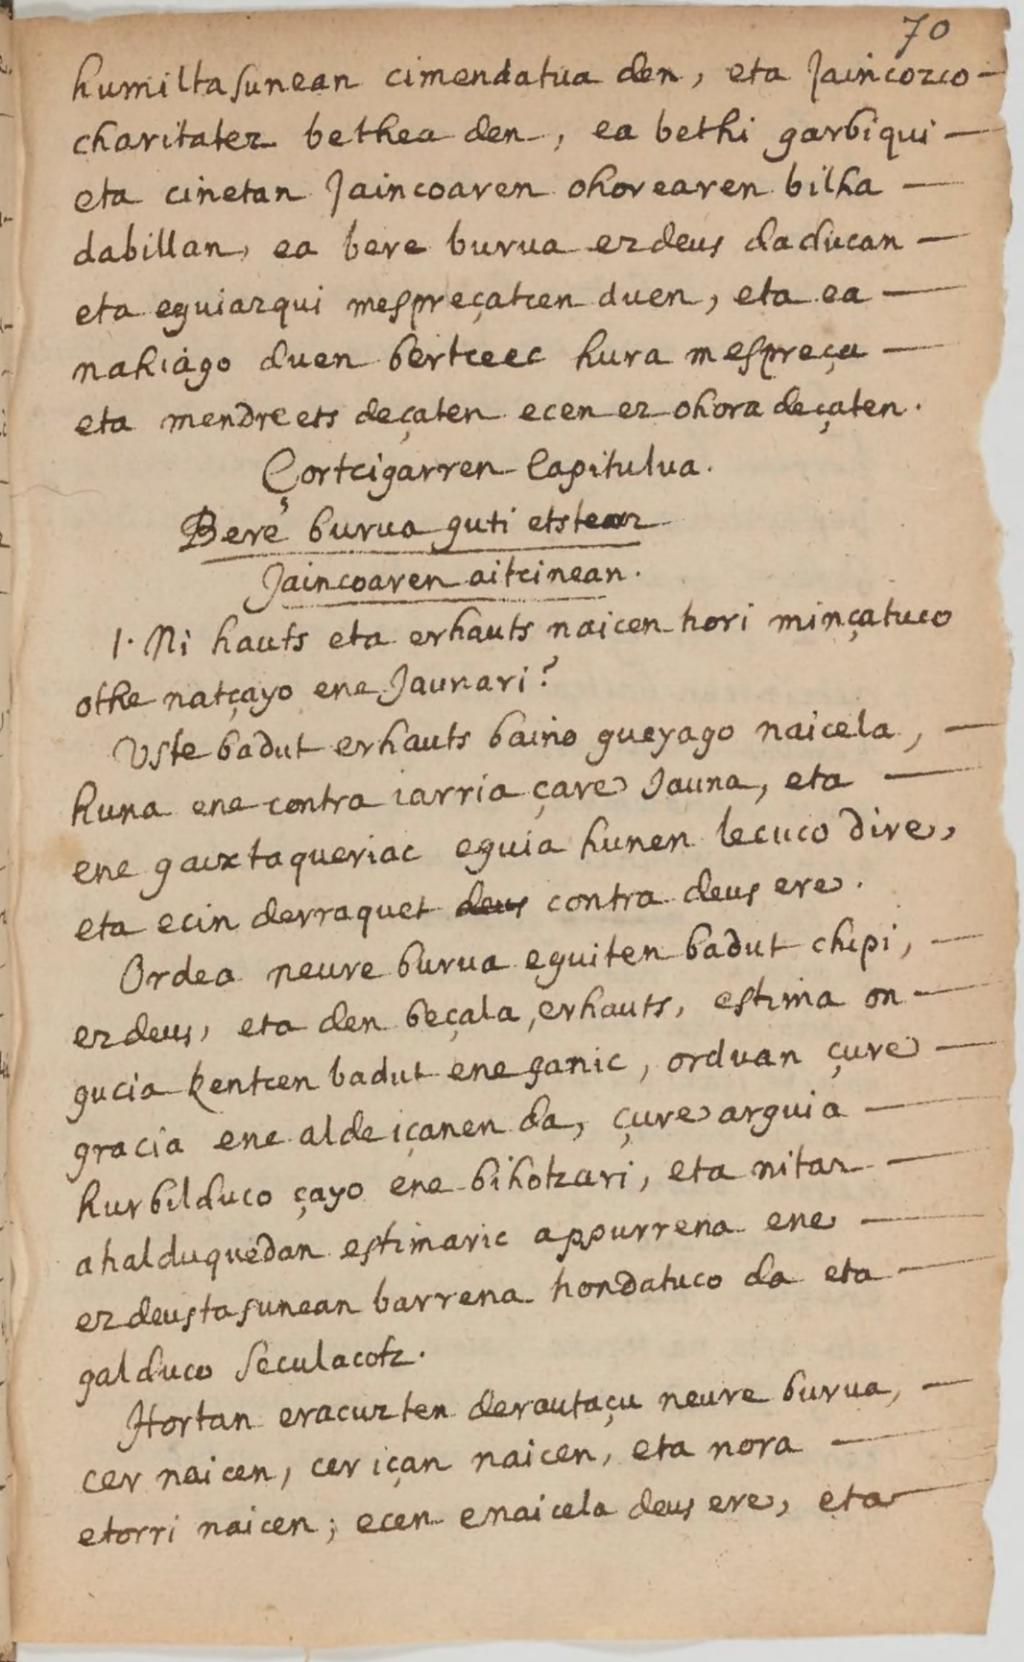 70
humiltasunean cimendatua den, eta Jaincozco —
charitatez bethea den, ea bethi garbiqui —
eta cinetan Jaincoaren ohorearen bilha —
dabillan, ea bere burua ezdeus daducan —
eta eguiazqui mespreçatcen duen, eta ea —
nahiago duen bertceec hura mespreça —
eta mendreets deçaten ecen ez ohora deçaten.
Çortcigarren Capitulua.
Bere burua guti etsteaz
Jaincoaren aitcinean.
1. Ni hauts eta erhauts naicen hori minçatuco
othe natçayo ene Jaunari?
Uste badut erhauts baino gueyago naicela, —
huna ene contra iarria çare Jauna, eta —
ene gaixtaqueriac eguia hunen lecuco dire,
eta ecin derraquet deus contra deus ere.
Ordea neure burua eguiten badut chipi, —
ezdeus, eta den beçala, erhauts, estima on —
gucia kentcen badut ene ganic, orduan çure —
gracia ene alde içanen da, çure arguia —
hurbilduco çayo ene bihotzari, eta nitaz —
ahalduquedan estimaric appurrena ene —
ezdeustasunean barrena hondatuco da eta —
galduco seculacotz.
Hortan eracuzten derautaçu neure burua, —
cer naicen, cer içan naicen, eta nora —
etorri naicen; ecen enaicela deus ere, eta